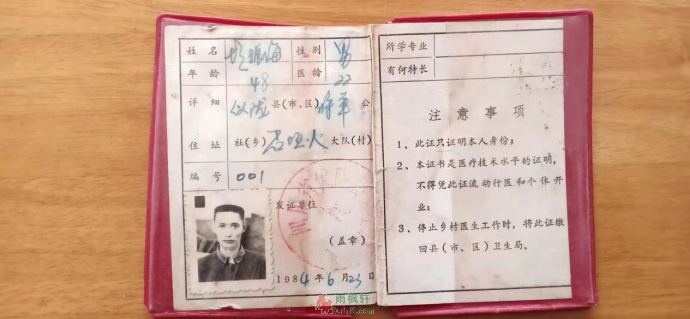 姓名 性别 男
年龄 48 医龄 22
详细 仪陇 县(市、区) 公
住址 社(乡) 大队(村)
编号 001
发证单位
(盖章)
1984年6月23日
所学专业
有何特长
注意事项
1、此证只证明本人身份;
2、本证书是医疗技术水平的证明,
不得凭此证流动行医和个体开
业;
3、停止乡村医生工作时,将此证缴
回县(市、区)卫生局。
雨枫轩